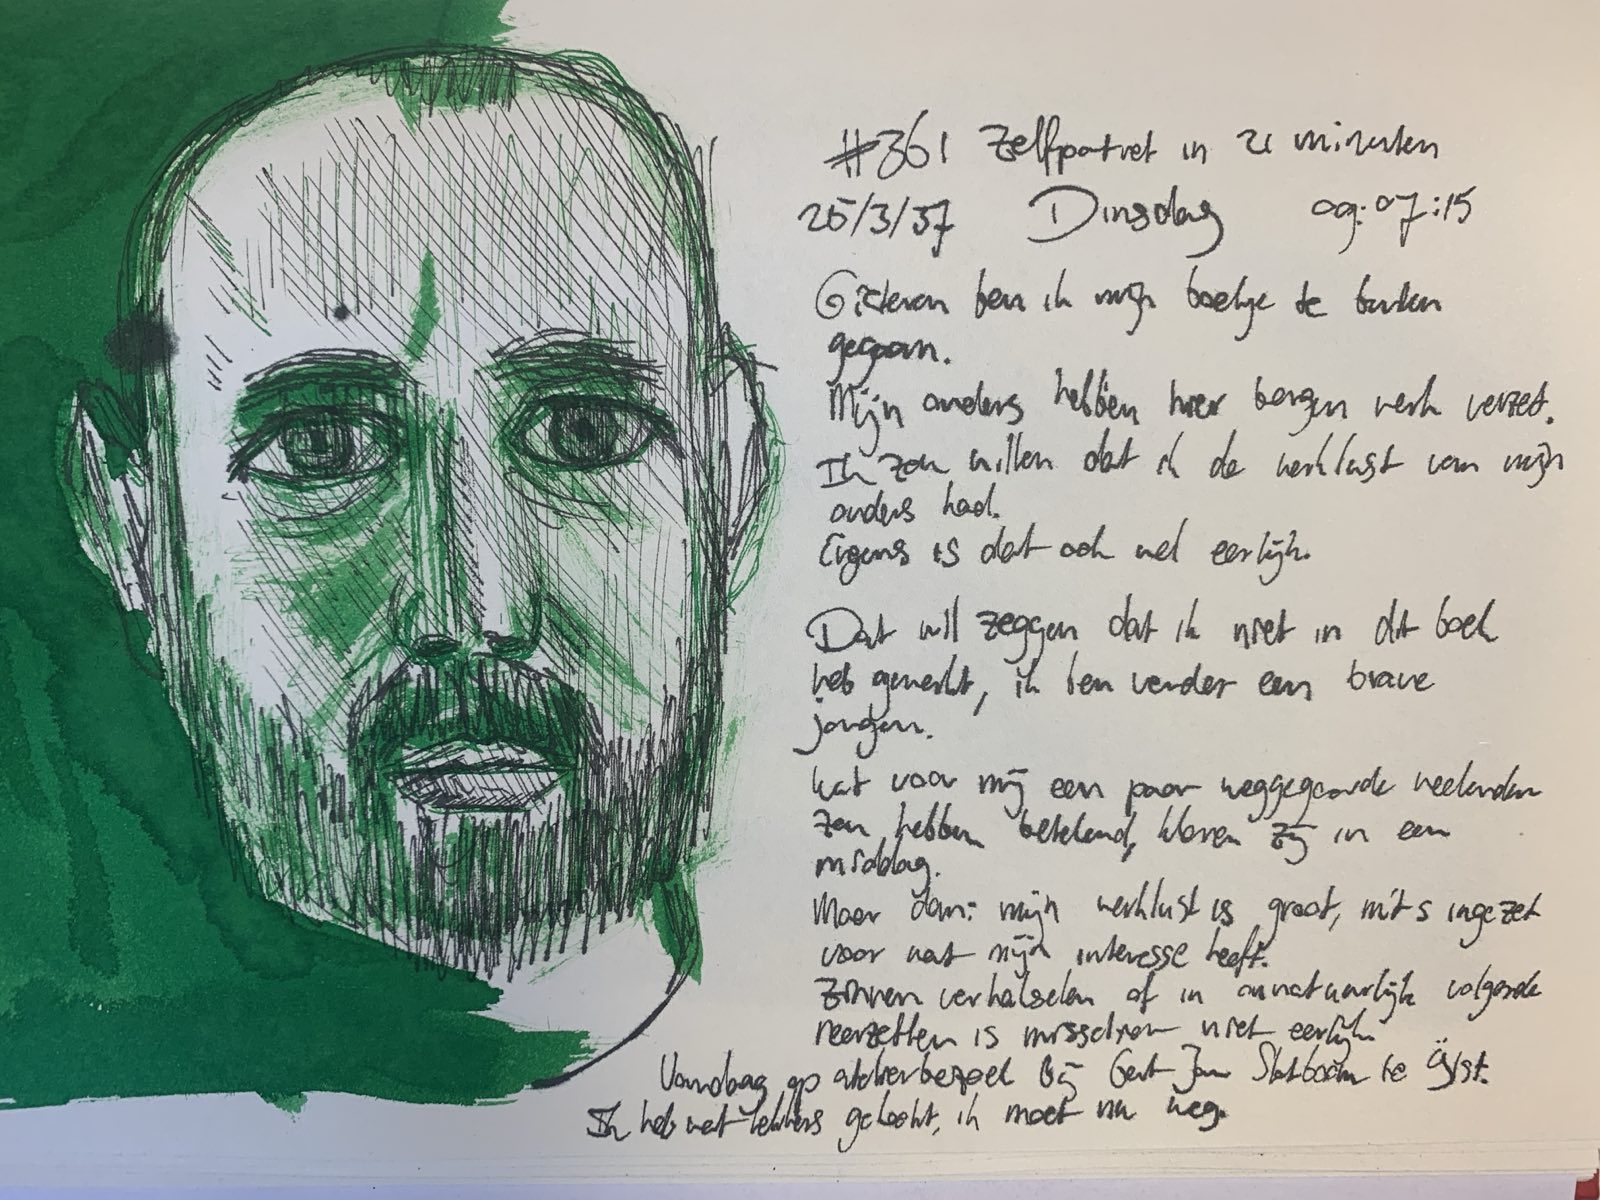 #361 Zelfportret in 21 minuten
25/3/37 Dinsdag 09:07:15
Gisteren ben ik mijn boekje te buiten
gegaan.
Mijn ouders hebben hier bergen werk verzet.
Ik zou willen dat ik de werklust van mijn
ouders had.
Ergens is dat ook wel eerlijk.
Dat wil zeggen dat ik niet in dit boek
heb gewerkt, ik ben verder een brave
jongen.
Wat voor mij een paar weggegooide weekenden
zou hebben betekend, klaren zij in een
middag.
Maar dan: mijn werklust is groot, mits ingezet
voor wat mijn interesse heeft.
Zinnen verhaspelen of in onnatuurlijk volgorde
neerzetten is misschien niet eerlijk.
Vandaag op atelierbezoek bij Gert Jan Slotboom te
Ik heb wat lekkers gekocht, ik moet nu weg.